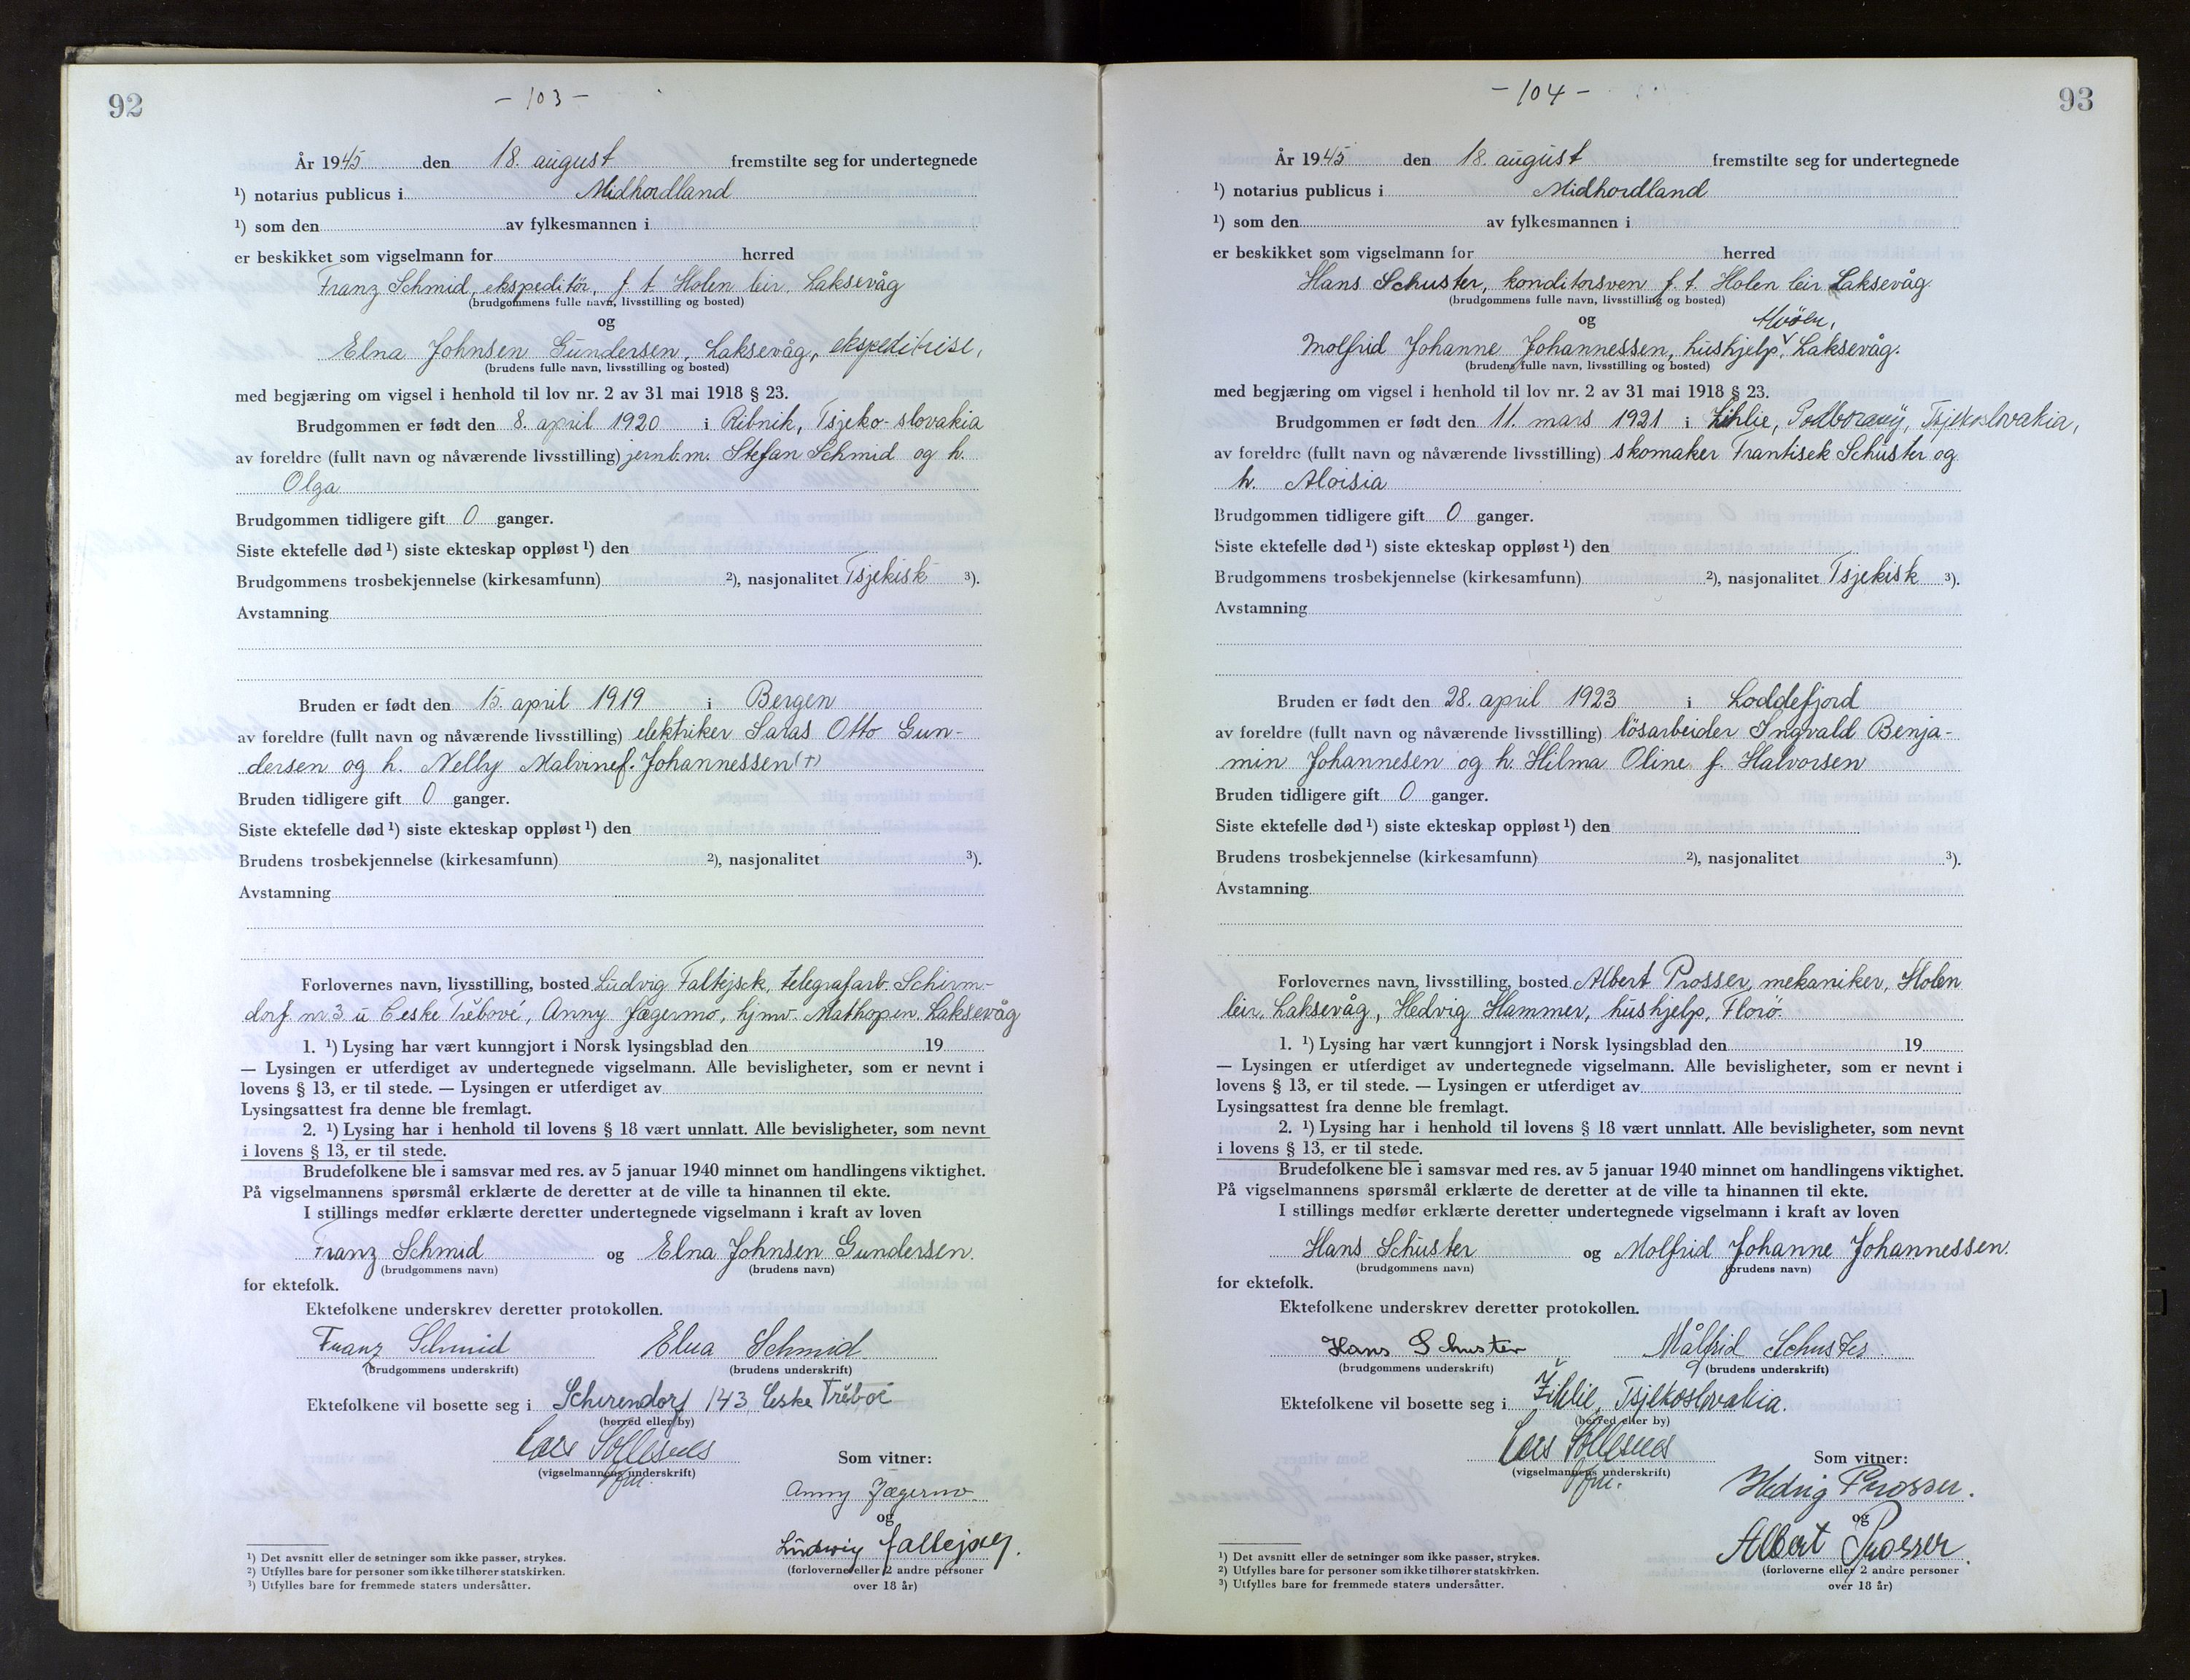 92
- 103 -
År 1945 den 18. august fremstilte seg for undertegnede
¹) notarius publicus i Midhordland
¹) som den av fylkesmannen i
er beskikket som vigselmann for herred
Franz Schmid, ekspeditør, f. t. Holen leir, Laksevåg
(brudgommens fulle navn, livsstilling og bosted)
og
Elna Johnsen Gundersen, Laksevåg, ekspeditrise,
(brudens fulle navn, livsstilling og bosted)
med begjæring om vigsel i henhold til lov nr. 2 av 31 mai 1918 § 23.
Brudgommen er født den 8. april 1920 i Ribnik, Tsjeko-slovakia
av foreldre (fullt navn og nåværende livsstilling) jernb.m. Stefan Schmid og h.
Olga
Brudgommen tidligere gift 0 ganger.
Siste ektefelle død ¹) siste ekteskap oppløst ¹) den
Brudgommens trosbekjennelse (kirkesamfunn) ²), nasjonalitet Tsjekisk ³).
Avstamning
Bruden er født den 15. april 1919 i Bergen
av foreldre (fullt navn og nåværende livsstilling) elektriker Saras Otto Gun-
dersen og h. Nelly Malvine f. Johannessen (+)
Bruden tidligere gift 0 ganger.
Siste ektefelle død ¹) siste ekteskap oppløst ¹) den
Brudens trosbekjennelse (kirkesamfunn) ²), nasjonalitet ³).
Avstamning
Forlovernes navn, livsstilling, bosted Ludvig Faltejsek, telegrafarb. Schirm-
dorf nr. 3 u Ceske Třebové, Anny Jægermo, hjmv. Mathopen. Laksevåg
1. ¹) Lysing har vært kunngjort i Norsk lysingsblad den 19
— Lysingen er utferdiget av undertegnede vigselmann. Alle bevisligheter, som er nevnt i
lovens § 13, er til stede. — Lysingen er utferdiget av
Lysingsattest fra denne ble fremlagt.
2. ¹) Lysing har i henhold til lovens § 18 vært unnlatt. Alle bevisligheter, som nevnt
i lovens § 13, er til stede.
Brudefolkene ble i samsvar med res. av 5 januar 1940 minnet om handlingens viktighet.
På vigselmannens spørsmål erklærte de deretter at de ville ta hinannen til ekte.
I stillings medfør erklærte deretter undertegnede vigselmann i kraft av loven
Franz Schmid og Elna Johnsen Gundersen.
(brudgommens navn) (brudens navn)
for ektefolk.
Ektefolkene underskrev deretter protokollen.
Franz Schmid Elna Schmid
(brudgommens underskrift) (brudens underskrift)
Ektefolkene vil bosette seg i Schirendorf 143, Ceske Třeboé
(herred eller by)
Lars Sollesnes
(vigselmannens underskrift)
Som vitner:
Anny Jægermo
og
Ludwig Faltejsek.
(forloverne eller 2 andre personer
over 18 år)
¹) Det avsnitt eller de setninger som ikke passer, strykes.
²) Utfylles bare for personer som ikke tilhører statskirken.
³) Utfylles bare for fremmede staters undersåtter.
93
- 104 -
År 1945 den 18. august fremstilte seg for undertegnede
¹) notarius publicus i Midhordland
¹) som den av fylkesmannen i
er beskikket som vigselmann for herred
Hans Schuster, konditorsven f. t. Holen leir Laksevåg
(brudgommens fulle navn, livsstilling og bosted)
og
Molfrid Johanne Johannessen, hushjelp, Laksevåg.
(brudens fulle navn, livsstilling og bosted)
med begjæring om vigsel i henhold til lov nr. 2 av 31 mai 1918 § 23.
Brudgommen er født den 11. mars 1921 i Zihlie, Podborany, Tsjekoslovakia,
av foreldre (fullt navn og nåværende livsstilling) skomaker Frantisek Schuster og
h. Aloisia
Brudgommen tidligere gift 0 ganger.
Siste ektefelle død ¹) siste ekteskap oppløst ¹) den
Brudgommens trosbekjennelse (kirkesamfunn) ²), nasjonalitet Tsjekisk ³).
Avstamning
Bruden er født den 28. april 1923 i Loddefjord
av foreldre (fullt navn og nåværende livsstilling) løsarbeider Ingvald Benja-
min Johannesen og h. Hilma Oline f. Halvorsen
Bruden tidligere gift 0 ganger.
Siste ektefelle død ¹) siste ekteskap oppløst ¹) den
Brudens trosbekjennelse (kirkesamfunn) ²), nasjonalitet ³).
Avstamning
Forlovernes navn, livsstilling, bosted Albert Prosser, mekaniker, Holen
leir, Laksevåg, Hedvig Hammer, hushjelp, Florø.
1. ¹) Lysing har vært kunngjort i Norsk lysingsblad den 19
— Lysingen er utferdiget av undertegnede vigselmann. Alle bevisligheter, som er nevnt i
lovens § 13, er til stede. — Lysingen er utferdiget av
Lysingsattest fra denne ble fremlagt.
2. ¹) Lysing har i henhold til lovens § 18 vært unnlatt. Alle bevisligheter, som nevnt
i lovens § 13, er til stede.
Brudefolkene ble i samsvar med res. av 5 januar 1940 minnet om handlingens viktighet.
På vigselmannens spørsmål erklærte de deretter at de ville ta hinannen til ekte.
I stillings medfør erklærte deretter undertegnede vigselmann i kraft av loven
Hans Schuster og Molfrid Johanne Johannessen.
(brudgommens navn) (brudens navn)
for ektefolk.
Ektefolkene underskrev deretter protokollen.
Hans Schuster Målfrid Schuster.
(brudgommens underskrift) (brudens underskrift)
Ektefolkene vil bosette seg i Žihlie, Tsjekoslovakia.
(herred eller by)
Lars Sollesnes
(vigselmannens underskrift)
Som vitner:
Hedvig Prosser.
og
Albert Prosser.
(forloverne eller 2 andre personer
over 18 år)
¹) Det avsnitt eller de setninger som ikke passer, strykes.
²) Utfylles bare for personer som ikke tilhører statskirken.
³) Utfylles bare for fremmede staters undersåtter.